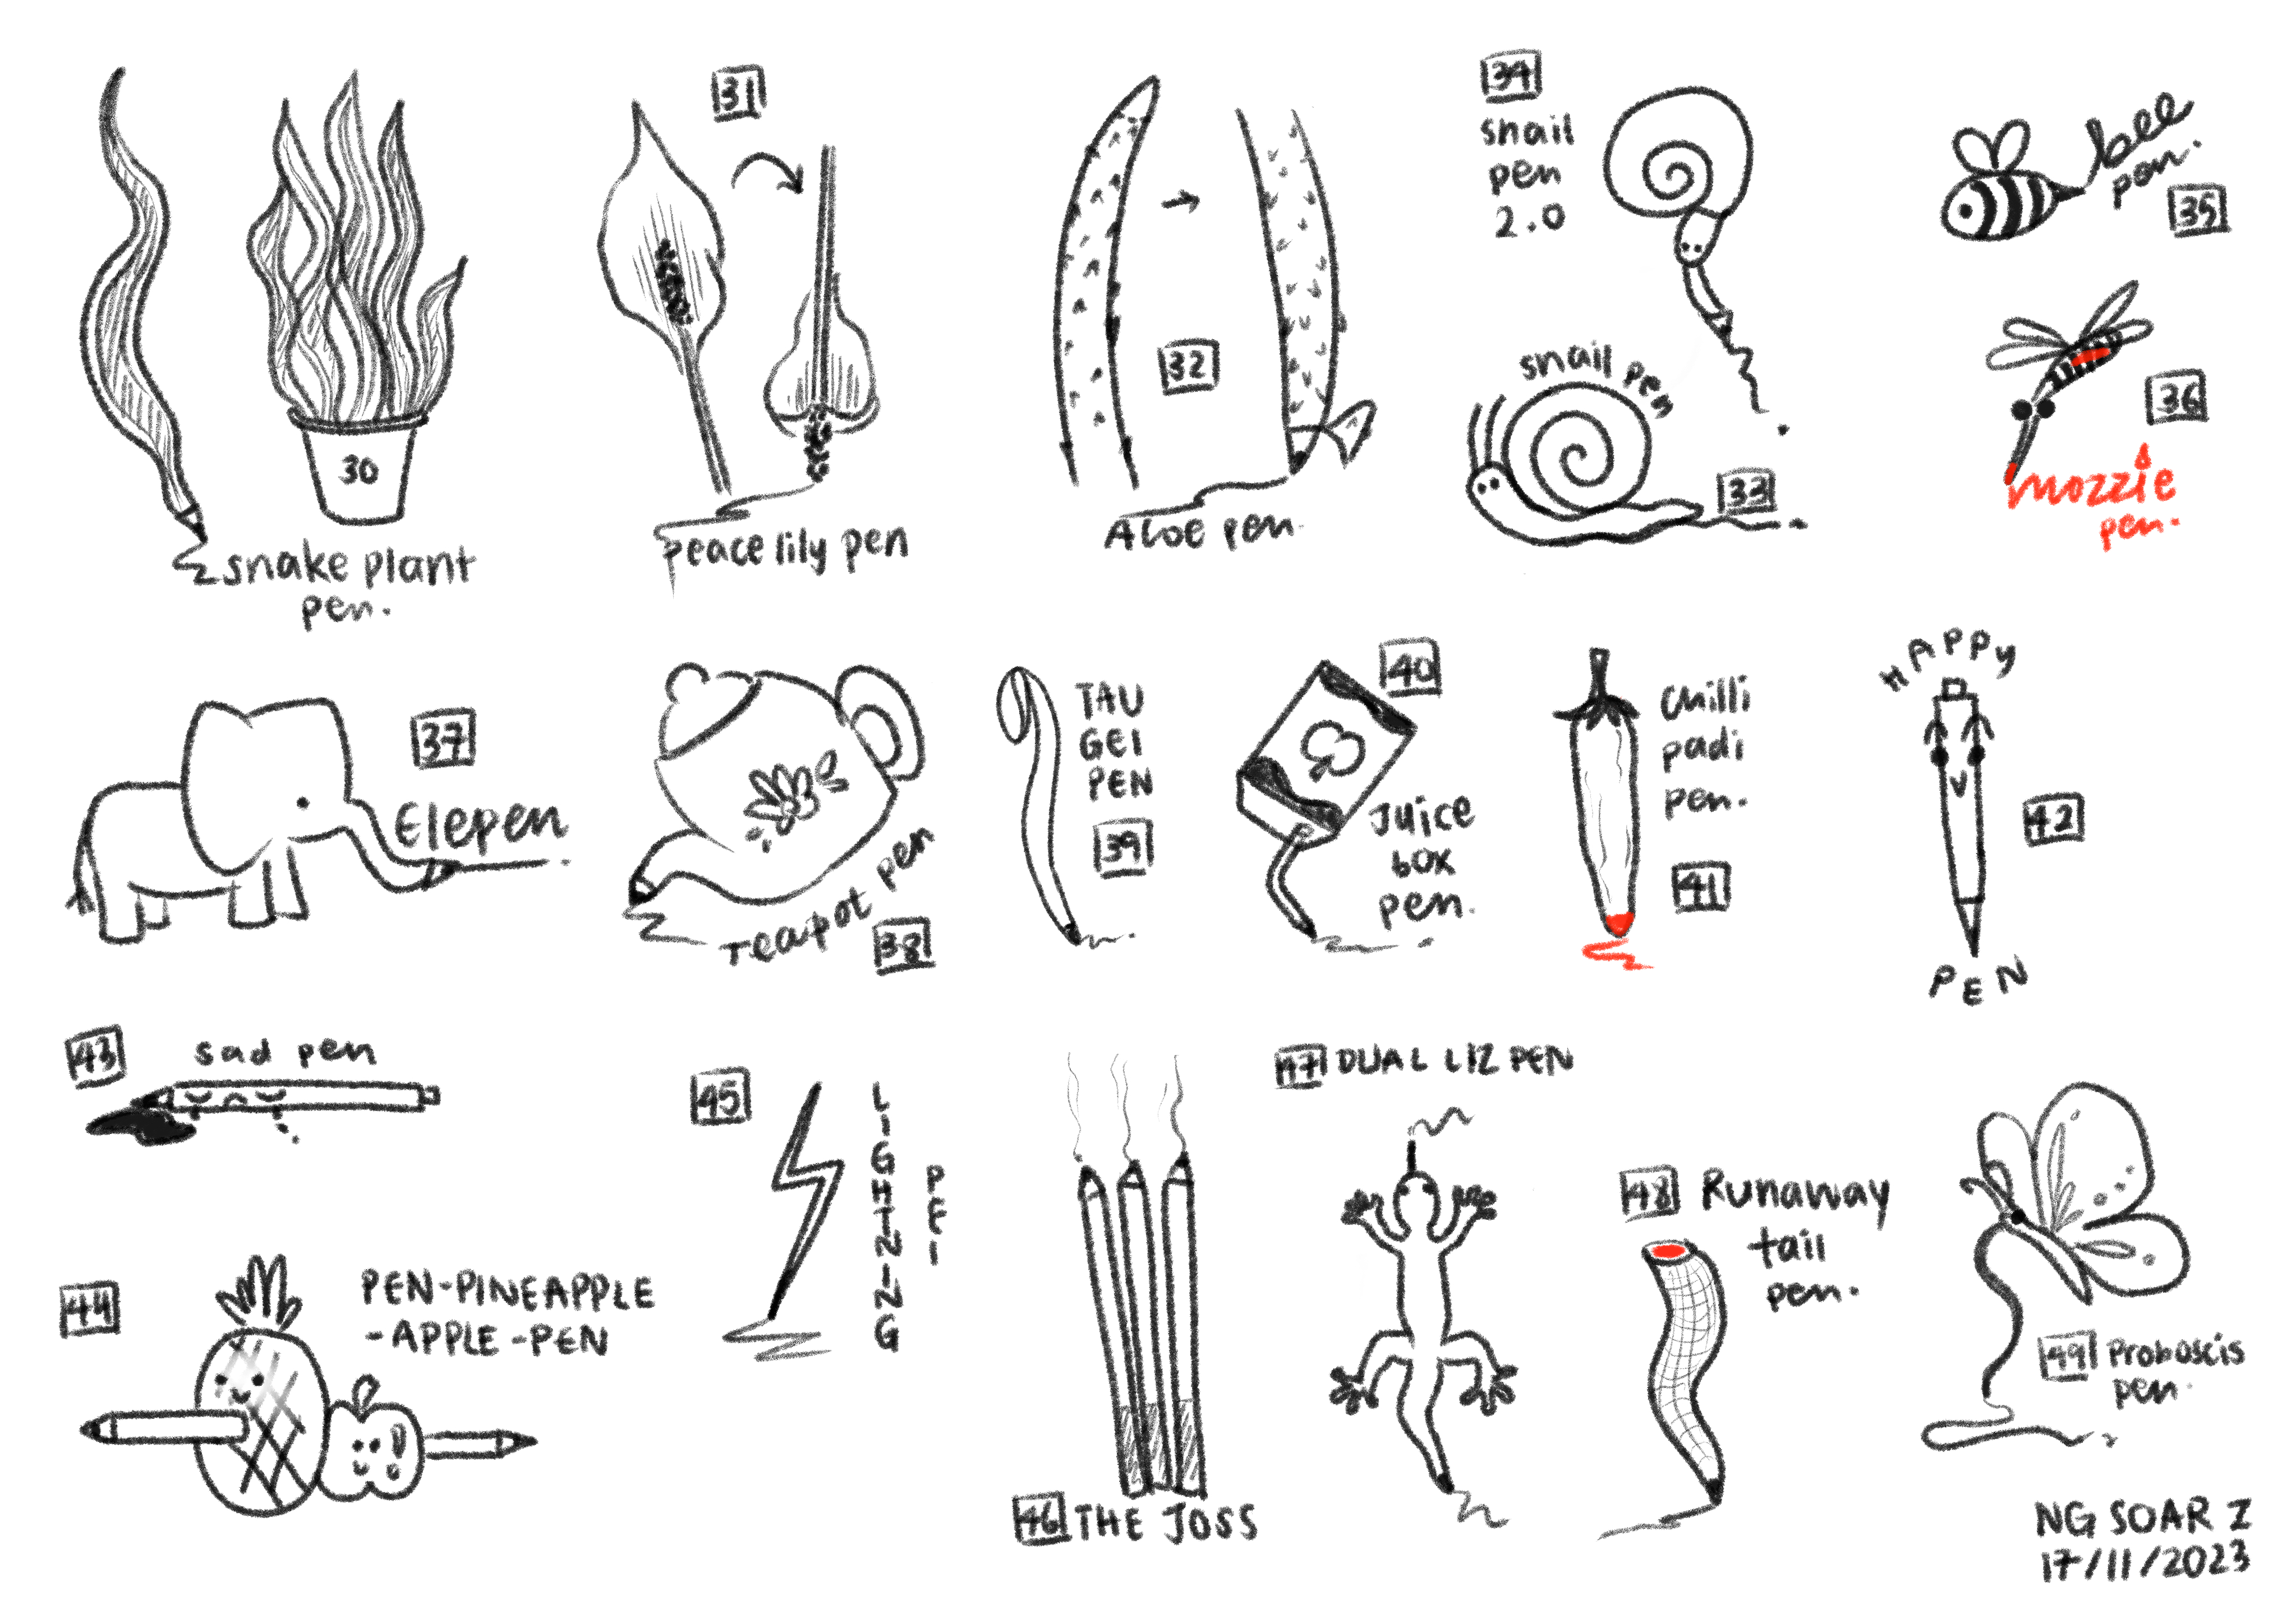 30
snake plant
pen.
31
peace lily pen
32
Aloe pen.
34
snail
pen
2.0
snail pen
33
bee
pen.
35
36
mozzie
pen.
37
Elepen
Teapot pen
38
TAU
GEI
PEN
39
40
Juice
box
pen.
chilli
padi
pen.
41
HAPPY
PEN
42
43
sad pen
44
PEN-PINEAPPLE
-APPLE-PEN
45
LIGHTNING
PEI
46 THE JOSS
47 DUAL LIZ PEN
48 Runaway
tail
pen.
49 Proboscis
pen.
NG SOAR Z
17/11/2023